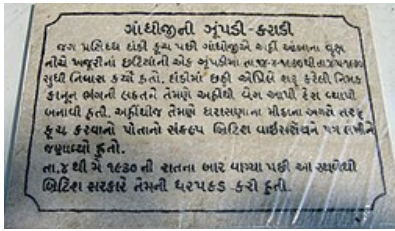 ગાંધીજીની ઝૂંપડી-કરાડી
જગ પ્રસિદ્ધ દાંડી કૂચ પછી ગાંધીજીએ અહીં આંબાના વૃક્ષ
નીચે ખજૂરીનાં છટિયાંની એક ઝૂંપડીમાં તા.૧૪-૪-૧૯૩૦થી તા.૪-૫-૧૯૩૦
સુધી નિવાસ કર્યો હતો. દાંડીમાં છઠ્ઠી એપ્રિલે શરૂ કરેલી નિમક
કાનૂન ભંગની લડતને તેમણે અહીંથી વેગ આપી દેશ વ્યાપી
બનાવી હતી. અહીંથીજ તેમણે ધરાસણાના મીઠાના અગરો તરફ
કૂચ કરવાનો પોતાનો સંકલ્પ બ્રિટિશ વાઇસરૉયને પત્ર લખીને
જણાવ્યો હતો.
તા.૪ થી મે ૧૯૩૦ ની રાતના બાર વાગ્યા પછી આ સ્થળેથી
બ્રિટિશ સરકારે તેમની ધરપકડ કરી હતી.